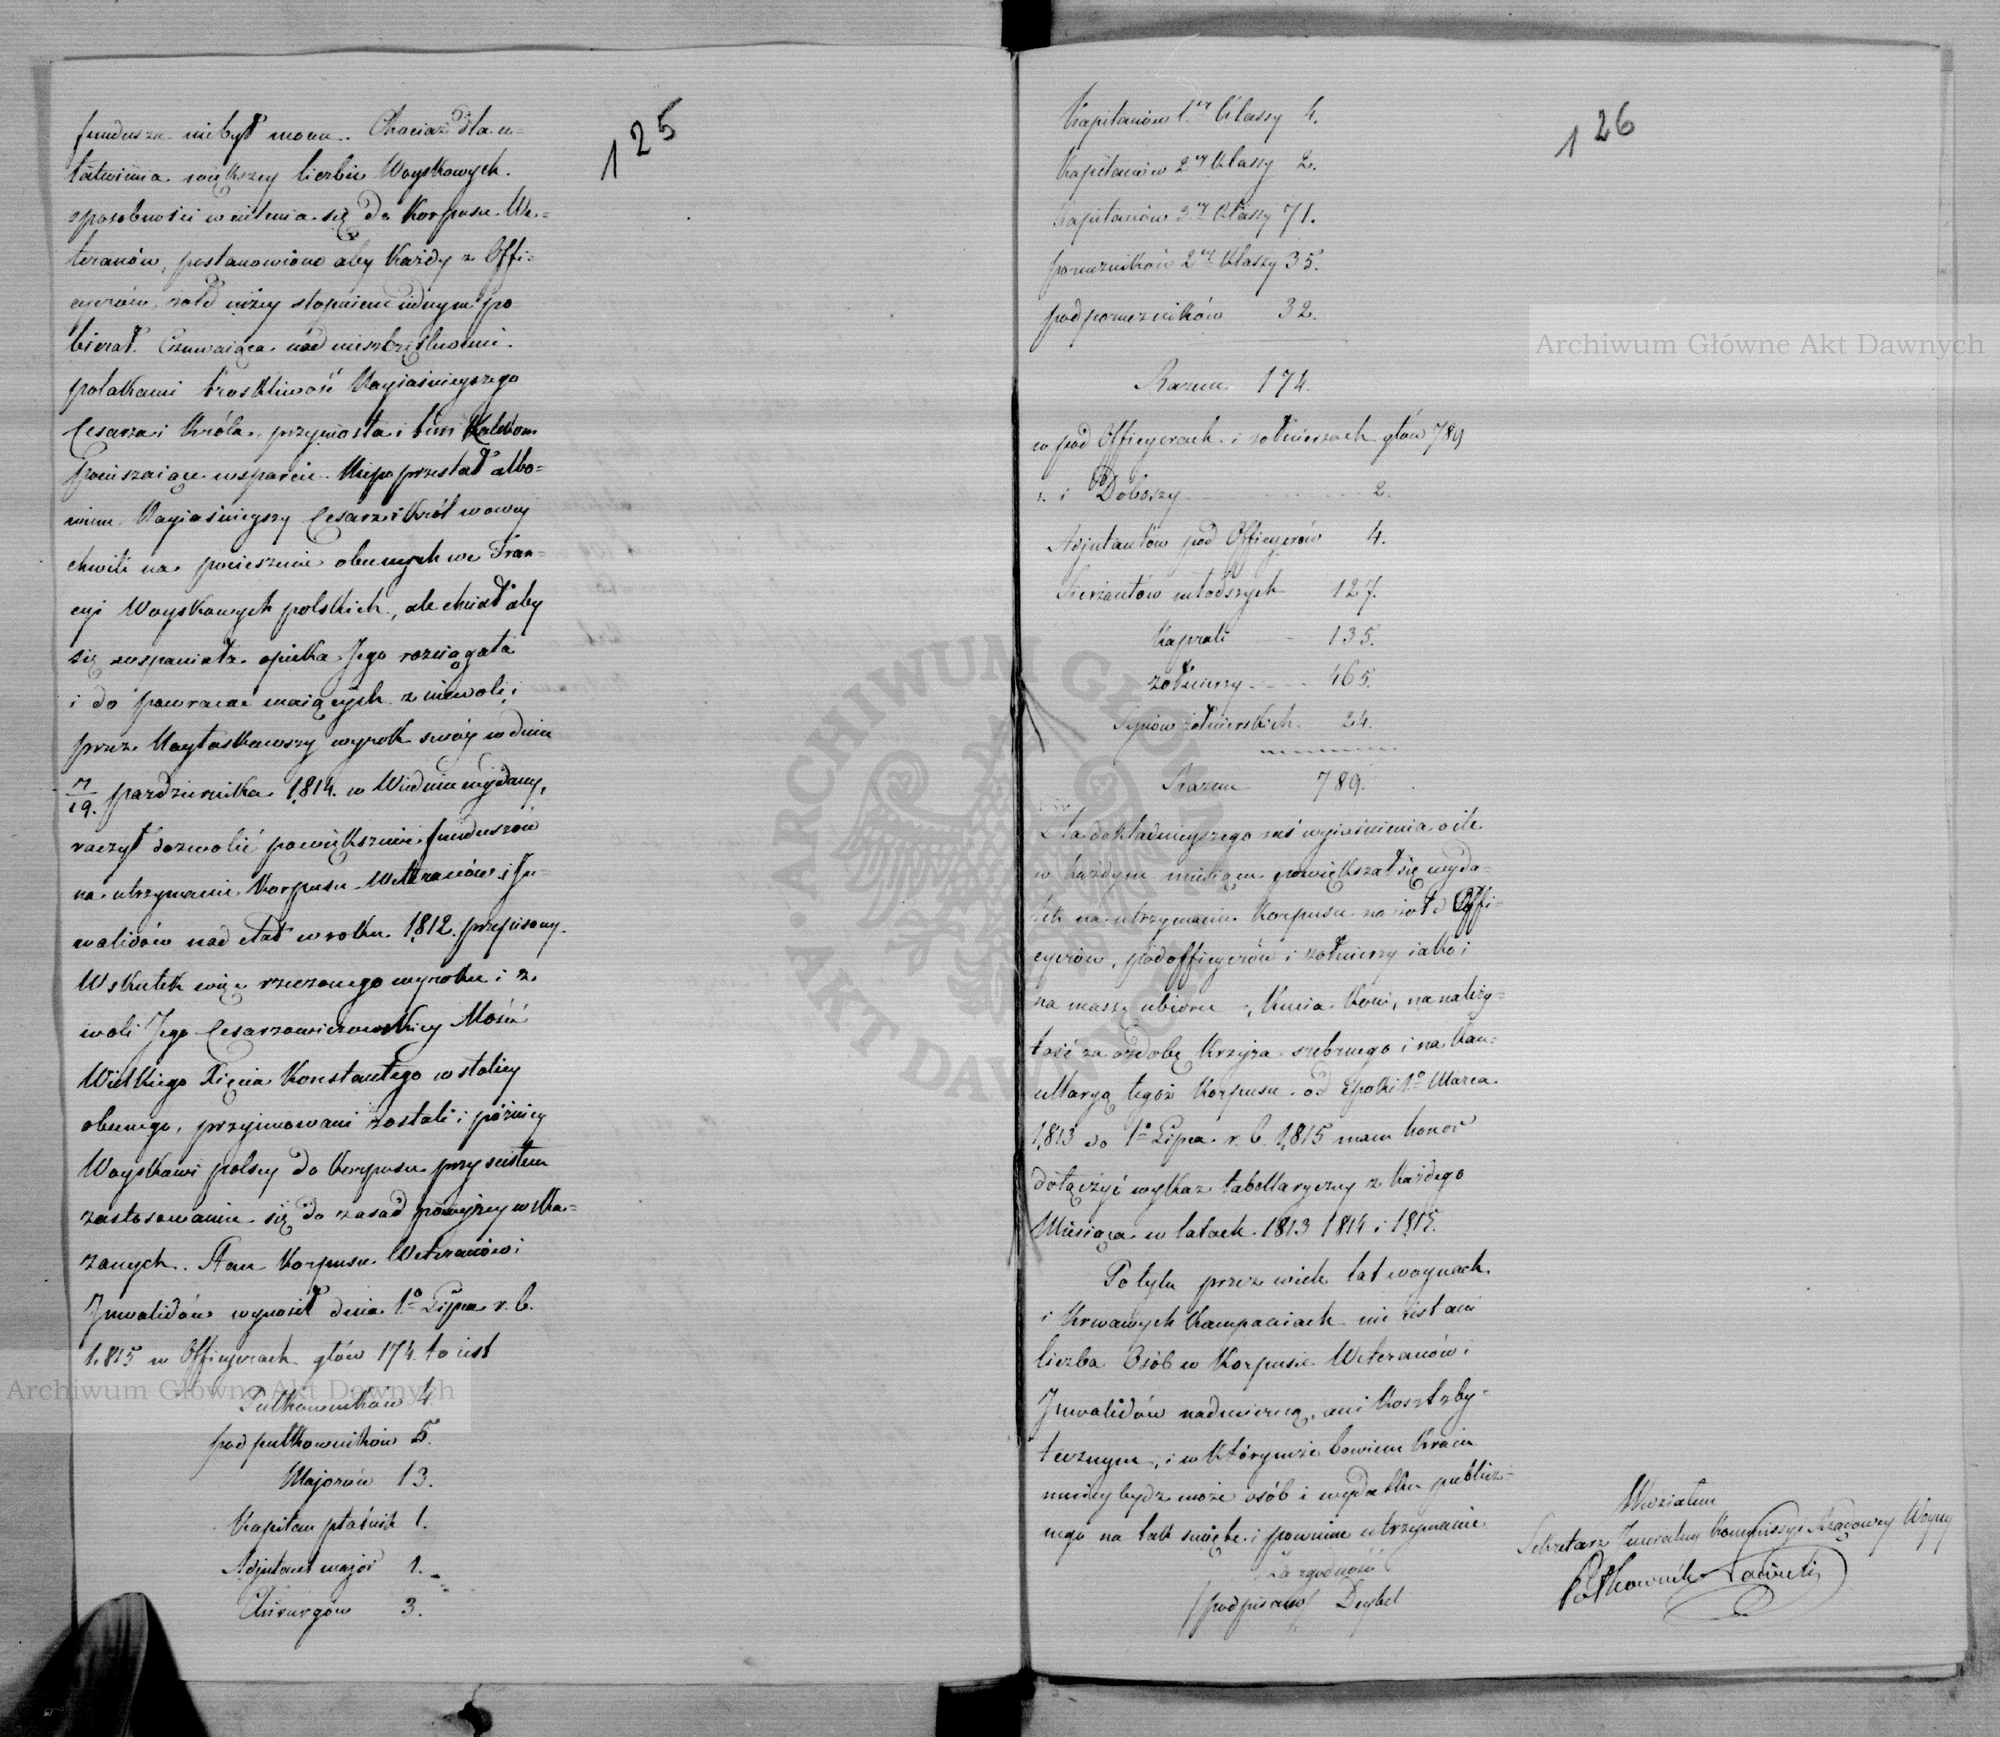 125
funduszu niebył mocen. Chociaż dla u=
łatwienia większey liczbie Woyskowych
sposobności wcielenia się do Korpusu We=
teranów, postanowiono aby Każdy z Offi=
cyerów żołd niżey stopniem iednym po
bierał. Czuwaiąca nad nieszczęśliwemi
polakami troskliwość Nayiaśnieyszego
Cesarza i Króla, przyniosła i tym Kalekom
pocieszaiące wsparcie. Nie poprzestał albo=
wiem Nayiaśnieyszy Cesarz i Król w owey
chwili na pocieszenie obecnych we Fran=
cyi Woyskowych polskich, ale chciał aby
się wspaniała opieka Jego rozciągała
i do powracać maiących z niewoli,
przez Nayłaskawszy wyrok swóy w dniu
7/19. pazdziernika 1814. w Wiedniu wydany,
raczył dozwolić powiększenie funduszów
na utrzymanie Korpusu Weteranów i In=
walidów nad etat w roku 1812. przepisany.
W skutek więc rzeczonego wyroku i z
woli Jego Cesarzowiczowskiey Mości
Wielkiego Xięcia Konstantego w stolicy
obecnego, przyimowani zostali i później
Woyskowi polscy do Korpusu przy scisłem
zastosowaniu się do zasad powyżey wska=
zanych. Stan Korpusu Weteranów i
Inwalidów wynosił dnia 1º Lipca r. b.
1815 w Officyerach głów 174. to iest
Pułkowników 4.
podpułkowników 5.
Majorów 13.
Kapitan płatnik 1.
Adjutant major 1.
Chirurgów 3.
126
Kapitanów 1ey Klassy 4.
Kapitanów 2ey Klassy 2.
Kapitanów 3ey Klassy 71.
poruczników 2ey Klassy 35.
podporuczników 32.
Razem 174.
w pod Officyerach i żołnierzach głów 789
i Doboszy 2.
Adjutantów pod Officyerów 4.
Sierżantów młodszych 127.
Kaprali 135.
żołnierzy 465.
Synów żołnierskich 24.
Razem 789.
Dla dokładnieyszego zaś wyiaśnienia o ile
w każdym miesiącu powiększał się wyda=
tek na utrzymanie Korpusu na żołd Offi=
cyerów, podofficyerów i żołnierzy iako i
na massę ubioru, Kucia Koni, na należy=
tość za ozdobę Krzyża srebrnego i na Kan=
cellaryą tegoż Korpusu od epoki 1º Marca
1813 do 1º Lipca r. b. 1815 mam honor
dołączyć wykaz tabellaryczny z Każdego
Miesiąca w latach 1813 1814 i 1815.
Po tylu przez wiele lat woynach
i Krwawych Kampaniach nie iest ani
liczba Osób w Korpusie Weteranów i
Inwalidów nadmierną, ani Koszt zby=
tecznym, i w Którymże bowiem Kraiu
mniey bydz może osób i wydatku publicz=
nego na tak święte i powinne utrzymanie
Za zgodność
/podpisano/ Deybel
Widziałem
Sekretarz Jeneralny Kommissyi Rządowey Woyny
Pułkownik
Archiwum Główne Akt Dawnych
Archiwum Główne Akt Dawnych
ARCHIWUM GŁÓWNE AKT DAWNYCH